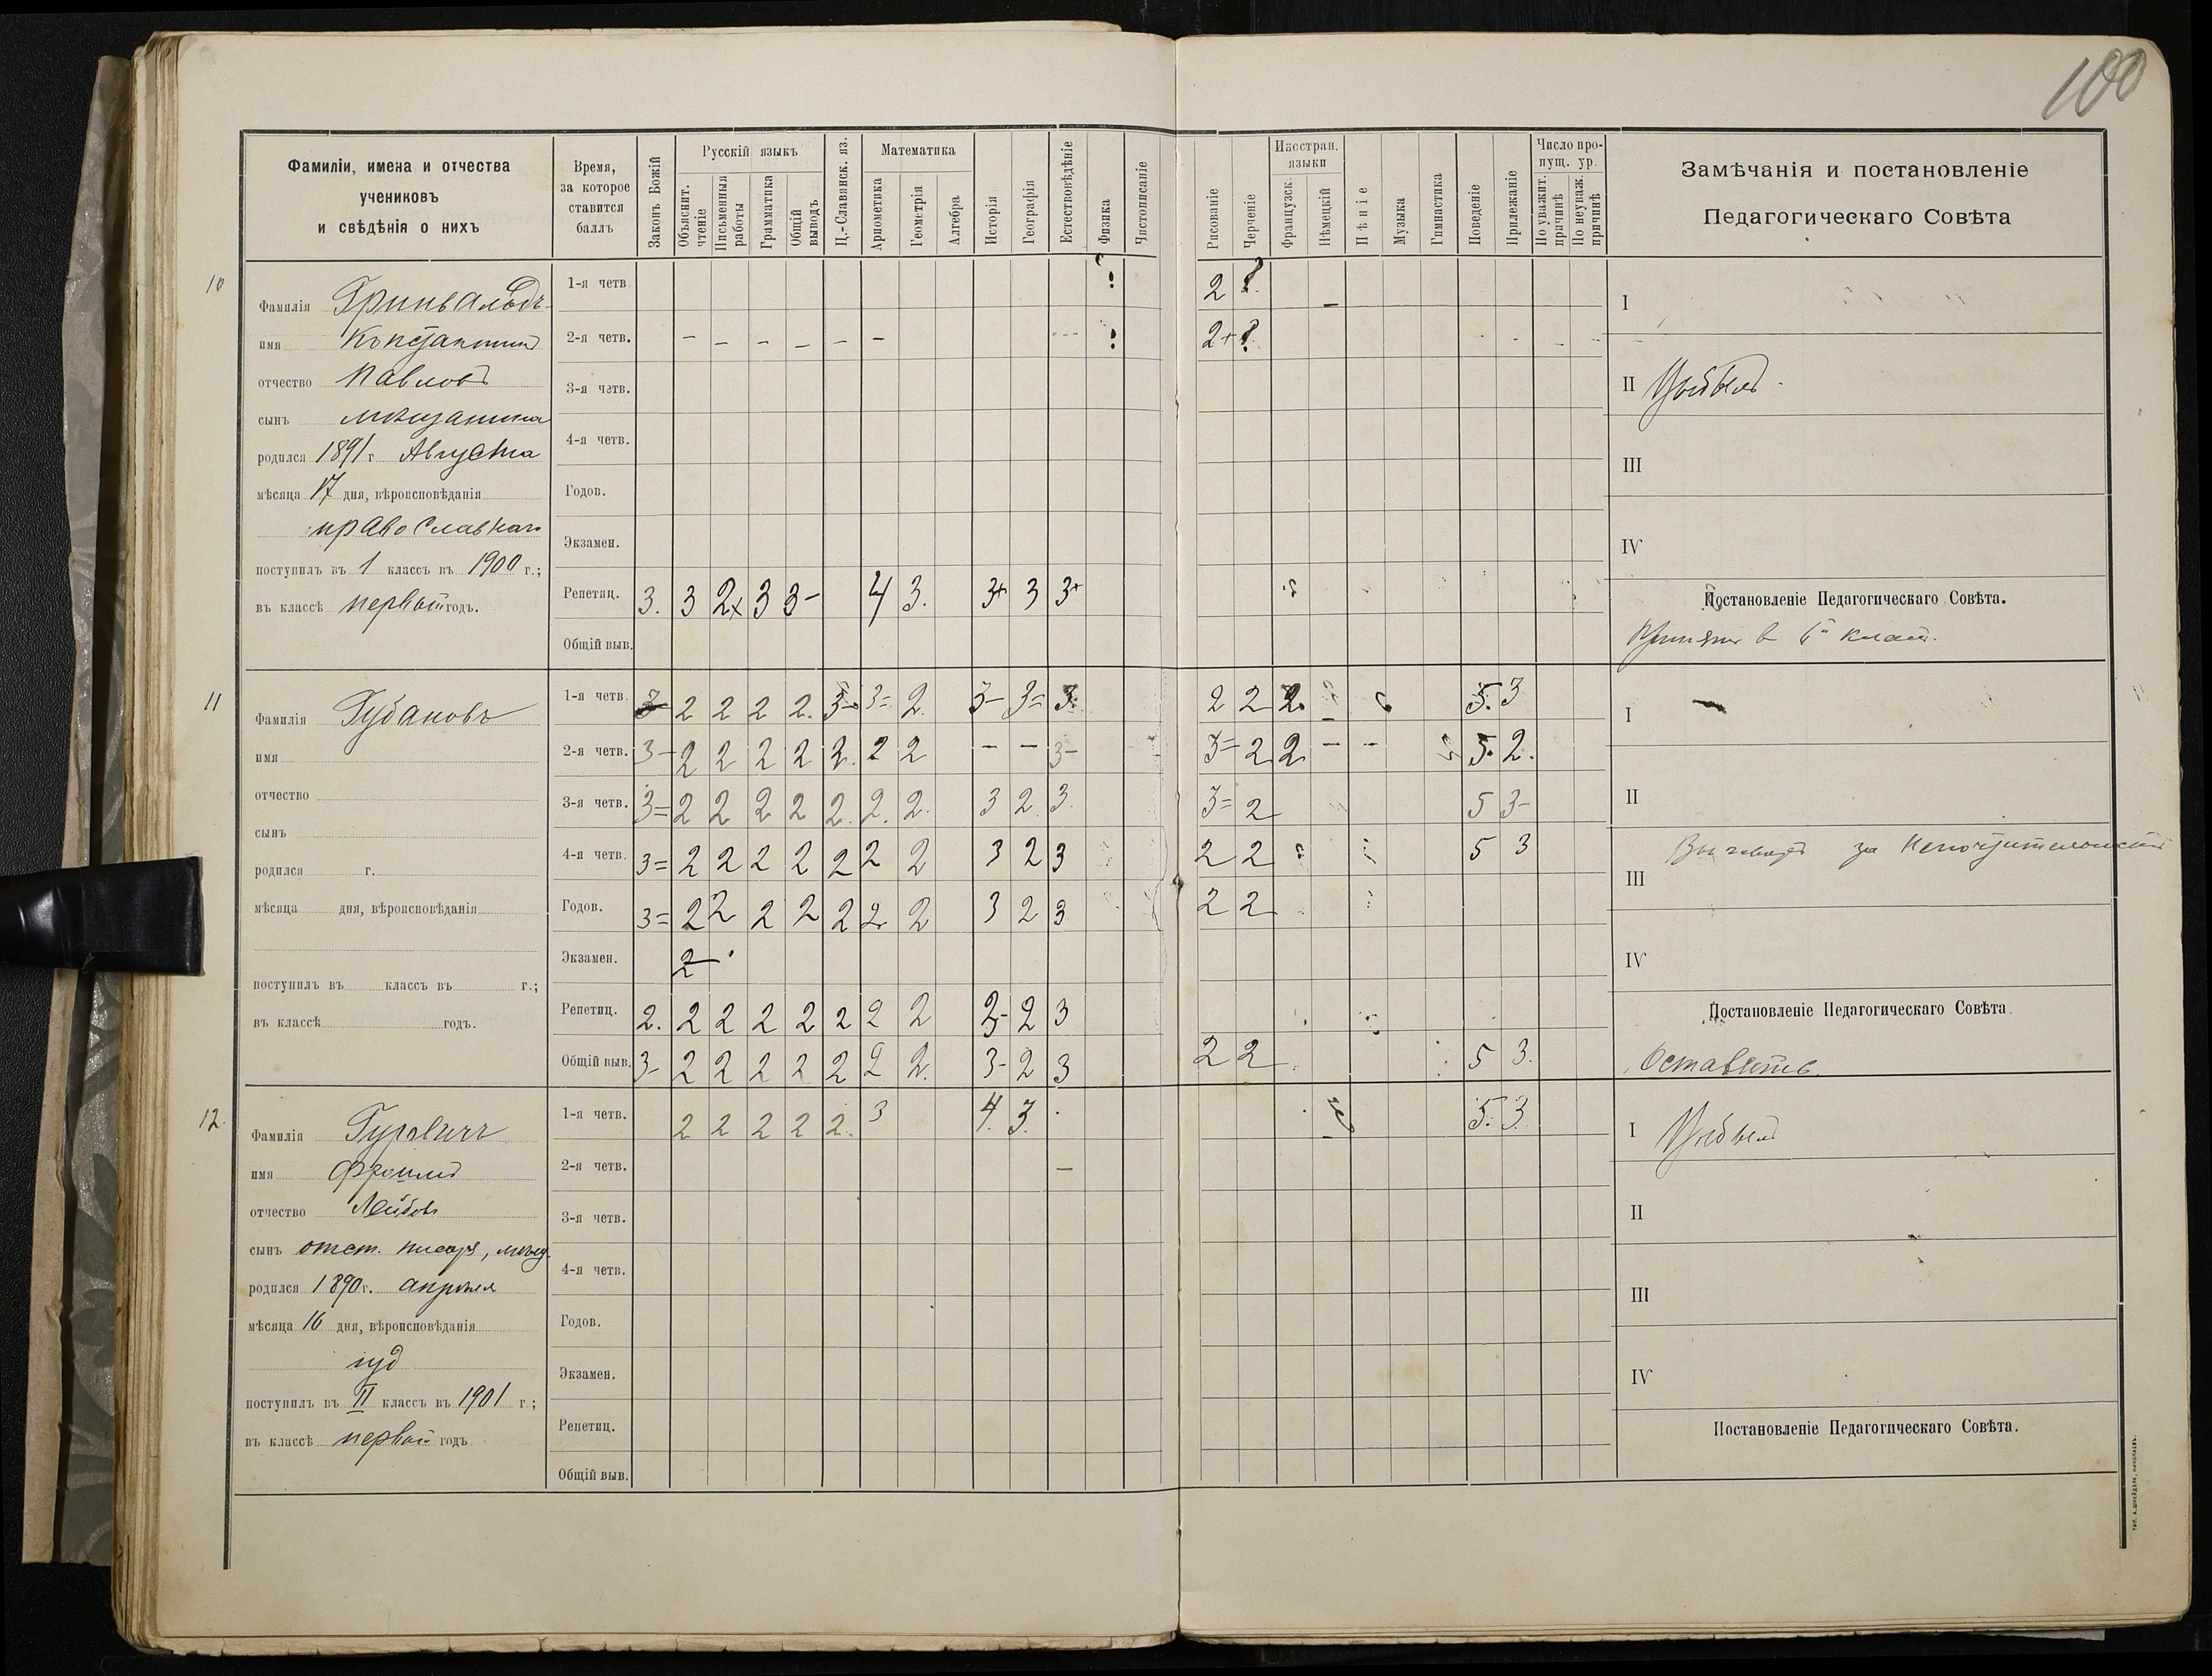 100
Фамиліи, имена и отчества
учениковъ
и свѣдѣнія о нихъ
Время,
за которое
ставится
баллъ
Законъ Божій
Русскій языкъ
Объяснит. чтеніе
Письменныя работы
Грамматика
Общій выводъ
Ц.-Славянск. яз.
Математика
Ариѳметика
Геометрія
Алгебра
Исторія
Географія
Естествовѣдѣніе
Физика
Чистописаніе
Рисованіе
Черченіе
Иностран. языки
Французск.
Нѣмецкій
Пѣніе
Музыка
Гимнастика
Поведеніе
Прилежаніе
Число про-
пущ. ур.
По уважит. причинѣ
По неуваж. причинѣ
Замѣчанія и постановленіе
Педагогическаго Совѣта
10
Фамилія Гринвальдъ
имя Константинъ
отчество Павловъ
сынъ мѣщанина
родился 1891 г Августа
мѣсяца 17 дня, вѣроисповѣданія
православнаго
поступилъ въ 1 классъ въ 1900 г.;
въ классѣ первый годъ.
1-я четв. 2 ?
2-я четв. – – – – – – 2+ ?
3-я четв.
4-я четв.
Годов.
Экзамен.
Репетиц. 3. 3 2x 3 3– 4 3. 3+ 3 3+
Общій выв.
I
II Выбылъ.
III
IV
Постановленіе Педагогическаго Совѣта.
11
Фамилія Губановъ
имя
отчество
сынъ
родился г.
мѣсяца дня, вѣроисповѣданія
поступилъ въ классъ въ г.;
въ классѣ годъ.
1-я четв. 3 2 2 2 2. 3– 3= 2. 3– 3= 3. 2 2 2. 5. 3
2-я четв. 3– 2 2 2 2 2. 2 2 – – 3– 3= 2 2 – – 5. 2.
3-я четв. 3= 2 2 2 2 2. 2. 2. 3 2. 3. 3= 2 5 3–
4-я четв. 3= 2 2 2 2 2 2 2 3 2 3 2 2 5 3
Годов. 3= 2 2 2 2 2 2. 2 3 2 3 2 2
Экзамен. 2
Репетиц. 2. 2 2 2 2 2 2 2 3– 2 3
Общій выв. 3– 2 2 2 2 2 2 2. 3– 2 3 2 2 5 3.
I
II
III Выговоръ за непочтительность
IV
Постановленіе Педагогическаго Совѣта.
Оставить.
12.
Фамилія Гуревичъ
имя Фроимъ
отчество Лейбовъ
сынъ отст. писаря, мѣщ.
родился 1890 г. апрѣля
мѣсяца 16 дня, вѣроисповѣданія
іуд
поступилъ въ II классъ въ 1901 г;
въ классѣ первый годъ
1-я четв. 2 2 2 2 2. 3 4. 3. 5. 3.
2-я четв. –
3-я четв.
4-я четв.
Годов.
Экзамен.
Репетиц.
Общій выв.
I Выбылъ
II
III
IV
Постановленіе Педагогическаго Совѣта.